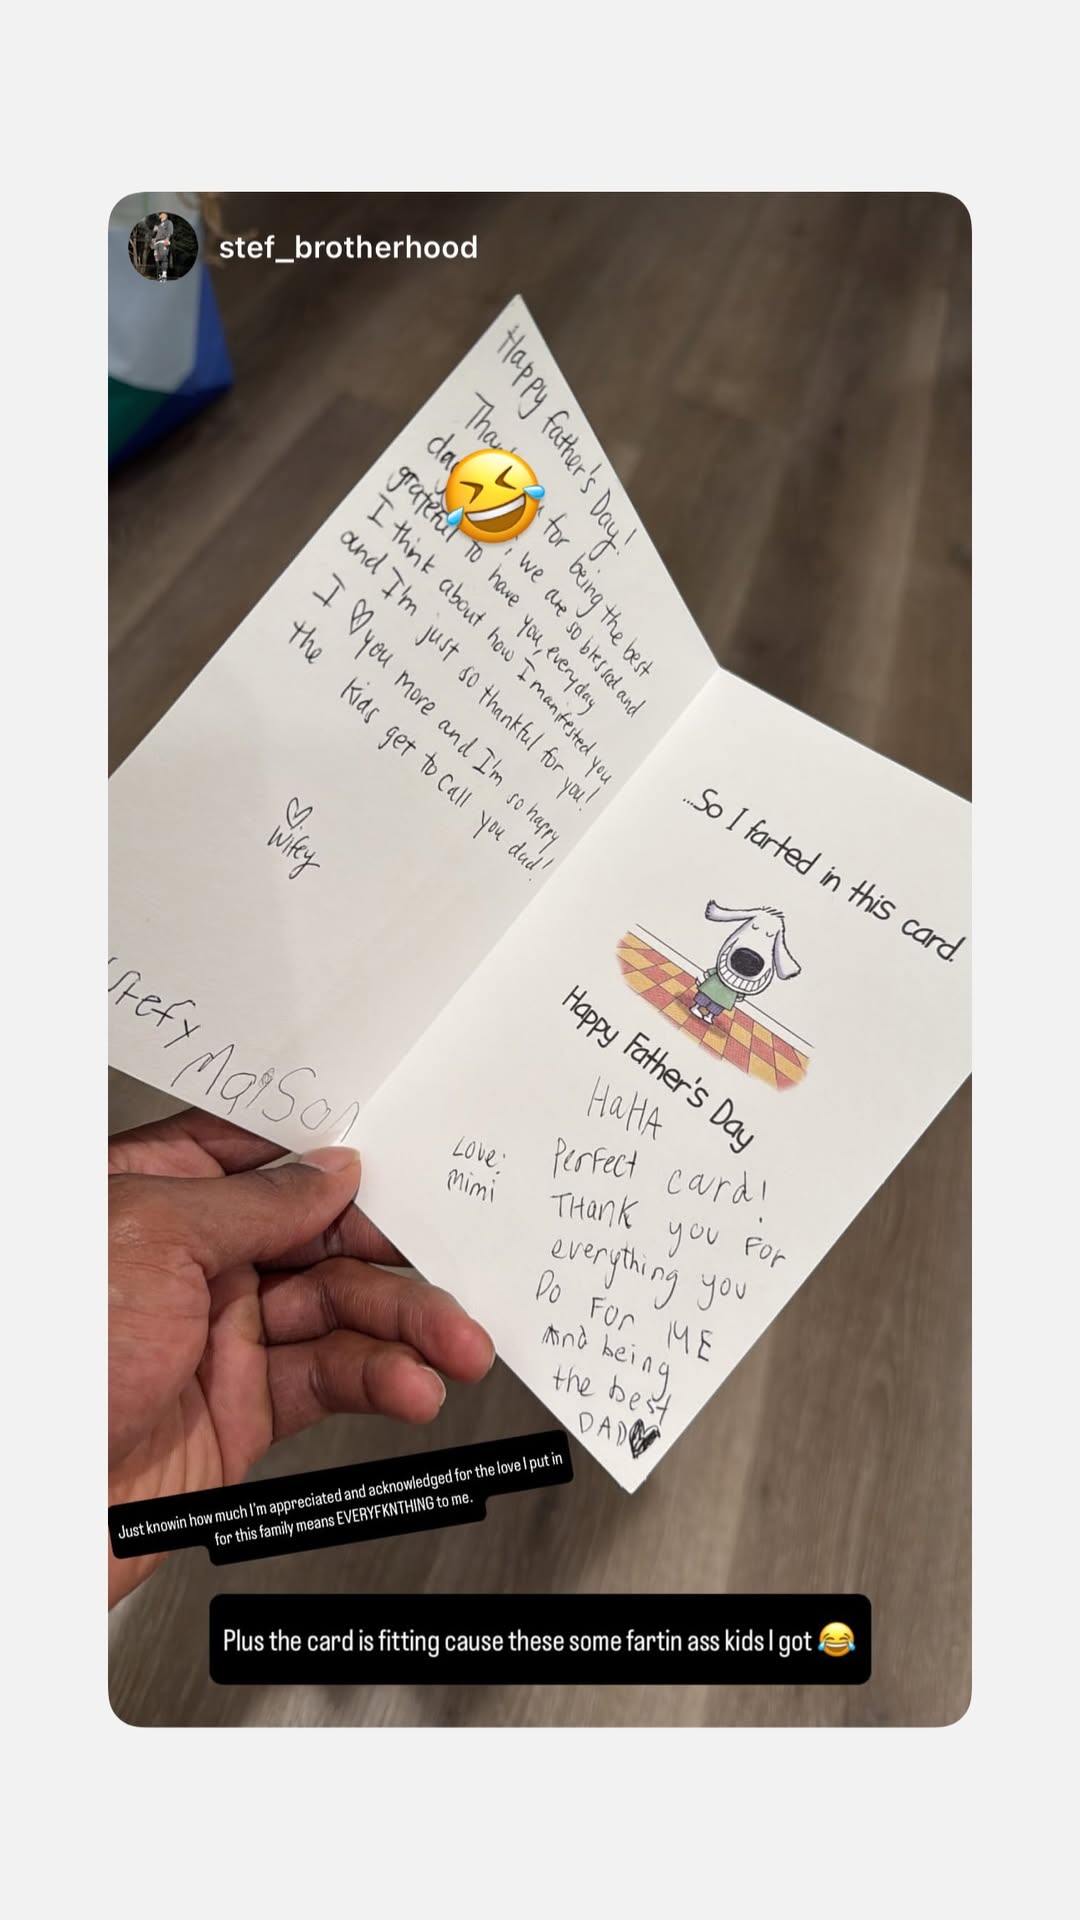 stef_brotherhood
Happy father's Day!
for being the best
we are so blessed and
grateful to have you, everyday
I think about how I manifested you
and I'm just so thankful for you!
I ♡ you more and I'm so happy
the kids get to call you dad!
♡
Wifey
Stefy Maison
...So I farted in this card.
Happy Father's Day
HaHA
Perfect card!
THank you For
everything you
Do For ME
And being
the best
DAD♥
Love:
Mimi
Just knowin how much I'm appreciated and acknowledged for the love I put in
for this family means EVERYFKNTHING to me.
Plus the card is fitting cause these some fartin ass kids I got 😂